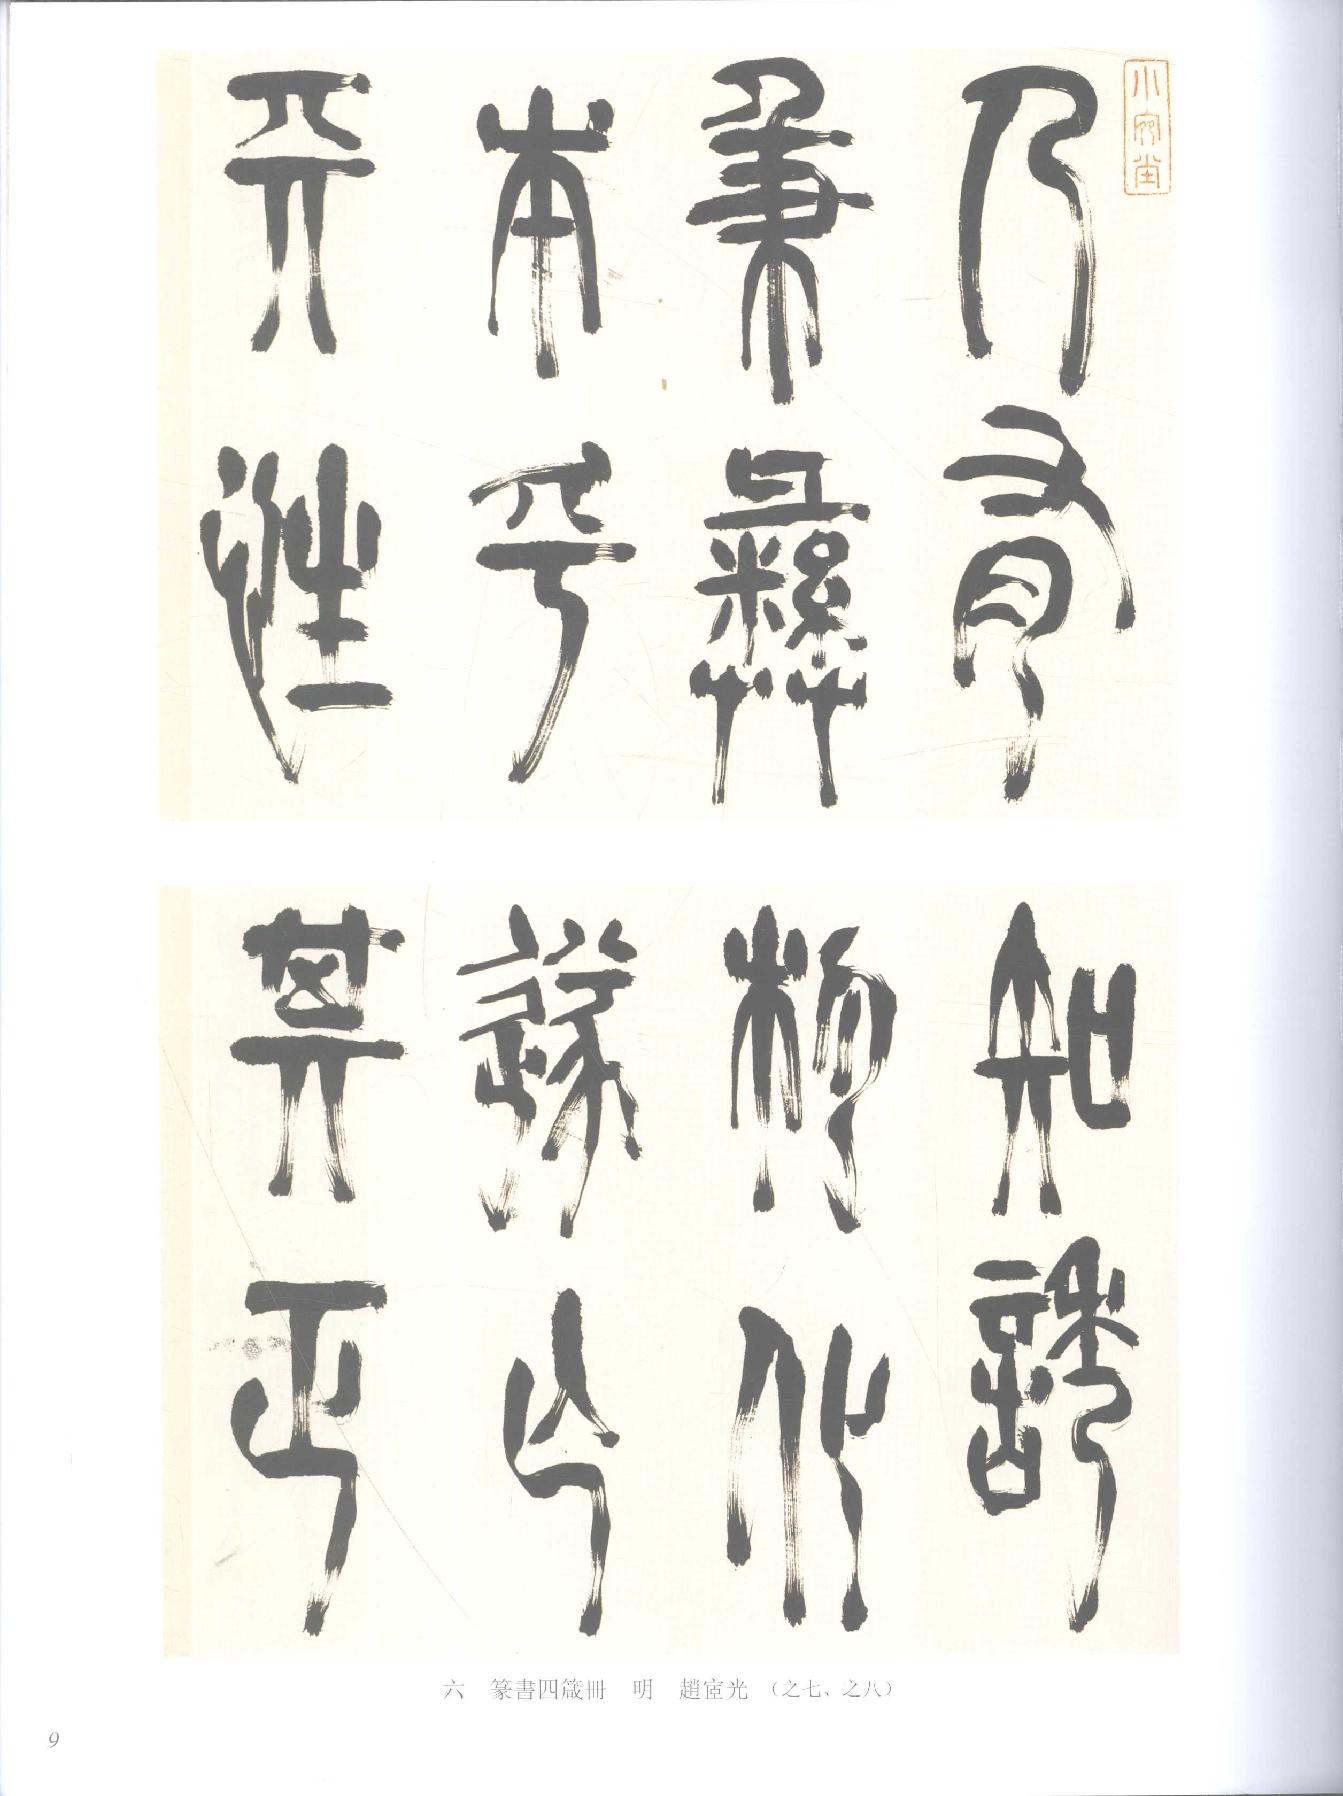 小宛堂
人有
秉彝
本乎
天性
知誘
物化
遂亡
其正
六 篆書四箴冊 明 趙宧光 (之七、之八)
9